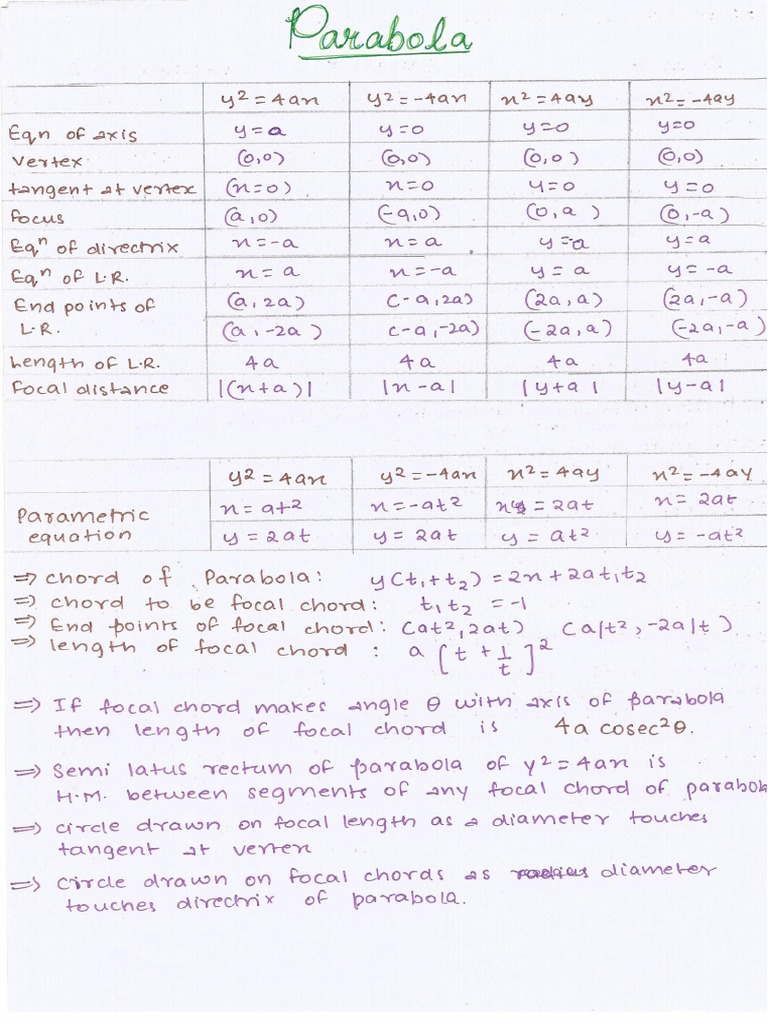 Parabola
y² = 4ax y² = -4ax x² = 4ay x² = -4ay
Eqn of axis y = a y = 0 y = 0 y = 0
vertex (0,0) (0,0) (0,0) (0,0)
tangent at vertex (x=0) x=0 y=0 y=0
focus (a,0) (-a,0) (0,a) (0,-a)
Eqⁿ of directrix x = -a x = a y = a y = a
Eqⁿ of L.R. x = a x = -a y = a y = -a
End points of (a, 2a) (-a, 2a) (2a, a) (2a, -a)
L.R. (a, -2a) (-a, -2a) (-2a, a) (-2a, -a)
Length of L.R. 4a 4a 4a 4a
focal distance |(x+a)| |x-a| |y+a| |y-a|
y² = 4ax y² = -4ax x² = 4ay x² = -4ay
Parametric x = at² x = -at² x = 2at x = 2at
equation y = 2at y = 2at y = at² y = -at²
⇒ chord of Parabola: y(t₁+t₂) = 2x + 2at₁t₂
⇒ chord to be focal chord: t₁t₂ = -1
⇒ End points of focal chord: (at², 2at) (a/t², -2a/t)
⇒ length of focal chord : a[t + 1/t]²
⇒ If focal chord makes angle θ with axis of parabola
then length of focal chord is 4a cosec²θ.
⇒ Semi latus rectum of parabola of y² = 4ax is
H.M. between segments of any focal chord of parabola
⇒ circle drawn on focal length as a diameter touches
tangent at vertex
⇒ circle drawn on focal chords as diameter
touches directrix of parabola.